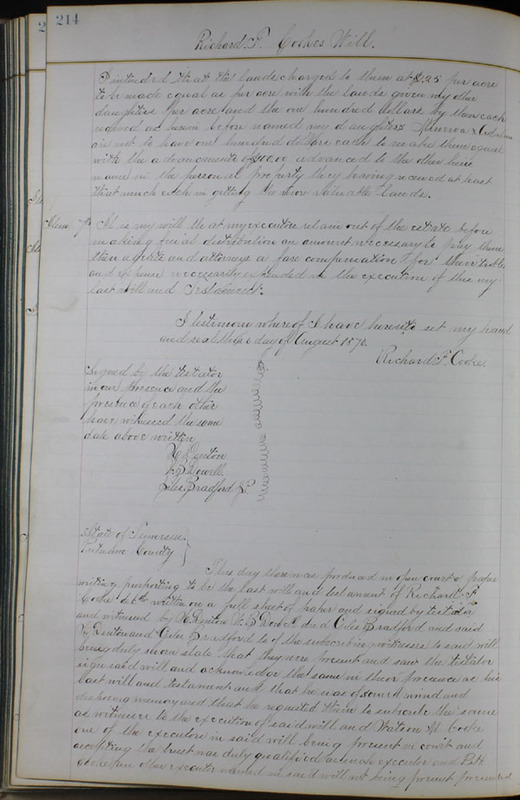 214
Richard F. Cookes Will.
I intended that the lands charged to them at $1.25 per acre
to be made equal as per acre with the lands given my other
daughters per acre and the one hundred dollars by them each
received as herein before named my daughters Minerva &
are not to have one hundred dollars each to make them equal
with the advancements of $100.00 advanced to the other heirs
named in the personal property they having received at least
that much each in getting the more valuable lands.
Item 7th It is my will that my executors retain out of the estate before
making final distribution an amount necessary to pay them
their agents and attorneys a fair compensation for their trouble
and expense necessarily expended in the execution of this my
last will and testament.
I testimony whereof I have hereunto set my hand
and seal this 6 day of August 1870.
Richard F. Cooke.
Signed by the testator
in our presence and the
presence of each other
have witnessed the same
date above written
H Denton
Dowell
Giles Bradford
State of Tennessee
Putnam County
This day there was produced in open court a paper
writing purporting to be the last will and testament of Richard F.
Cooke written on a full sheet of paper and signed by testator
and witnessed by Denton and Giles Bradford and said
Denton and Giles Bradford two of the subscribing witnesses to said will
being duly sworn state that they were present and saw the testator
sign said will and acknowledge the same in their presence as his
last will and testament and that he was of sound mind and
disposing memory and that he requested them to subscribe the same
as witnesses to the execution of said will and Watson M. Cooke
one of the executors in said will being present in court and
accepting the trust was duly qualified as such executor and
the other executor named in said will not being present